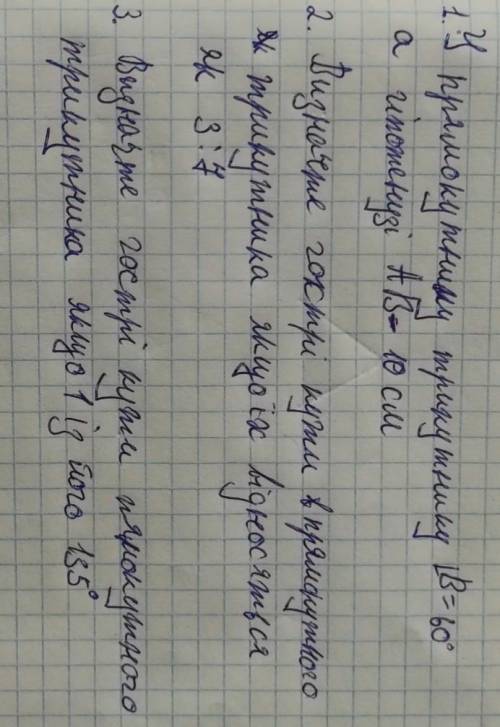 1. У прямокутнику трикутнику B = 60°
а гіпотенузі AB = 10 см
2. Визначте гострі кути в прямокутного
трикутника якщо їх відносяться
як 3:7
3. Визначте гострі кути прямокутного
трикутника якщо 1 із його 135°